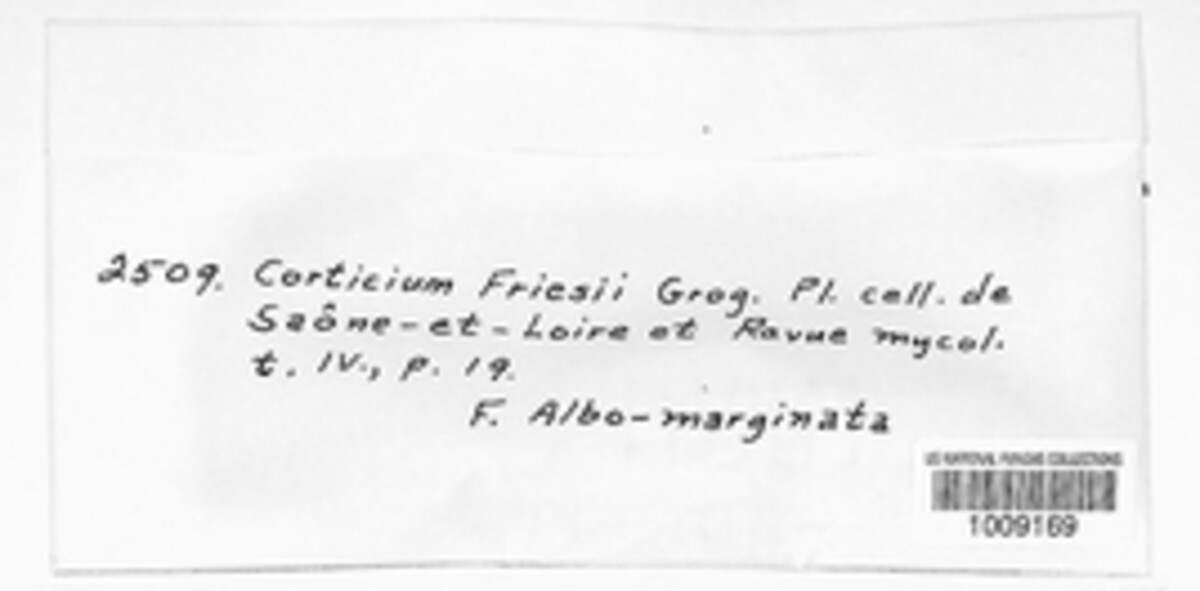 2509. Corticium Friesii Grog. Pl. cell. de
Saône-et-Loire et Ravue mycol.
t. IV., p. 19.
F. Albo-marginata
US NATIONAL FUNGUS COLLECTIONS
1009169